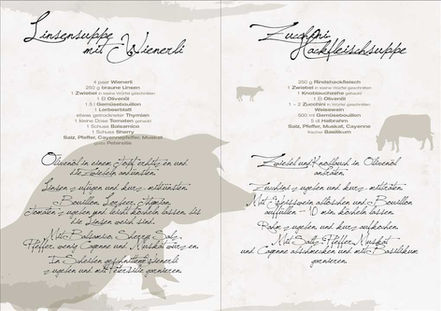 Linsensuppe
mit Wienerli
4 paar Wienerli
250 g braune Linsen
1 Zwiebel in kleine Würfel geschnitten
1 El Olivenöl
1.5 l Gemüsebouillon
1 Lorbeerblatt
etwas getrockneter Thymian
1 kleine Dose Tomaten gehackt
1 Schuss Balsamico
1 Schuss Sherry
Salz, Pfeffer, Cayennepfeffer, Muskat
Petersilie
Olivenöl in einem Topf erhitzen und
die Zwiebeln andünsten.
Linsen zufügen und kurz mitdünsten.
Bouillon, Lorbeer, Thymian,
Tomaten zugeben und kochen lassen, bis
die Linsen weich sind.
Mit Balsamico, Sherry, Salz,
Pfeffer, wenig Cayenne und Muskat würzen.
In Scheiben geschnittene Wienerli
zugeben und mit Petersilie garnieren.
Zucchini
Hackfleischsuppe
250 g Rindshackfleisch
1 Zwiebel in kleine Würfel geschnitten
1 Knoblauchzehe gehackt
1 El Olivenöl
1 - 2 Zucchini in Würfel geschnitten
Weisswein
500 ml Gemüsebouillon
5 dl Halbrahm
Salz, Pfeffer, Muskat, Cayenne
frischer Basilikum
Zwiebel und Knoblauch in Olivenöl
anbraten.
Zucchini zugeben und kurz mitbraten.
Mit Weisswein ablöschen und Bouillon
auffüllen - 10 min kochen lassen.
Rahm zugeben und kurz aufkochen.
Mit Salz, Pfeffer, Muskat
und Cayenne abschmecken und mit Basilikum
garnieren.